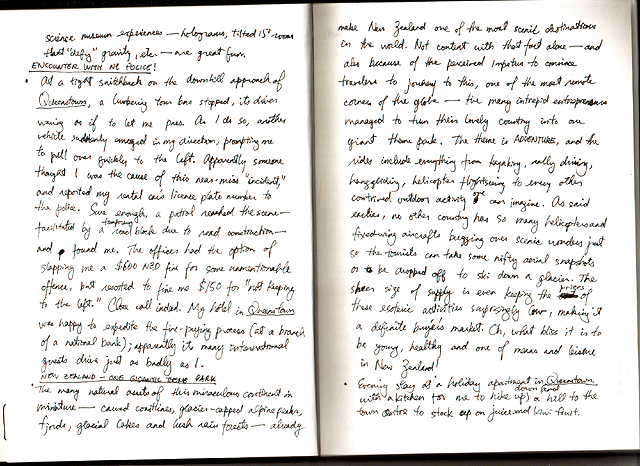 science museum experiences — holograms, tilted 15° rooms
that "defy" gravity, etc. — are great fun.
ENCOUNTER WITH NZ POLICE!
• At a tight switchback on the downhill approach of
Queenstown, a lumbering tour bus stopped, its driver
waving as if to let me pass. As I do so, another
vehicle suddenly emerged in my direction, prompting me
to pull over quickly to the left. Apparently someone
thought I was the cause of this near-miss "incident,"
and reported my rental car's licence plate number to
the police. Sure enough, a patrol reached the scene —
facilitated by a temporary road block due to road construction —
and found me. The officer had the option of
slapping me a $600 NZD fine for some unmentionable
offence, but resorted to fine me $150 for "not keeping
to the left." Close call indeed. My hotel in Queenstown
was happy to expedite the fine-paying process (at a branch
of a national bank); apparently many international
guests drive just as badly as I.
NEW ZEALAND — ONE GIGANTIC THEME PARK
• The many natural assets of this miraculous continent in
miniature — carved coastlines, glacier-capped alpine peaks,
fjords, glacial lakes and lush rain forests — already
make New Zealand one of the most scenic destinations
in the world. Not content with that fact alone — and
also because of the perceived impetus to convince
travelers to journey to this, one of the most remote
corners of the globe — the many intrepid entrepreneurs
managed to turn their lovely country into one
giant theme park. The theme is ADVENTURE, and the
rides include everything from kayaking, rally driving,
hanggliding, helicopter flightseeing to every other
contrived outdoor activity one can imagine. As said
earlier, no other country has so many helicopters and
fixed-wing aircrafts buzzing over scenic wonders just
so the tourists can take some nifty aerial snapshots
or to be dropped off to ski down a glacier. The
sheer size of supply is even keeping the prices of
these esoteric activities surprisingly low, making it
a definite buyer's market. Oh, what bliss it is to
be young, healthy and one of means and leisure
in New Zealand!
• Evening stay at a holiday apartment in Queenstown,
with a kitchen (for me to hike up) down and a hill to the
town centre to stock up on juice and kiwi fruit.